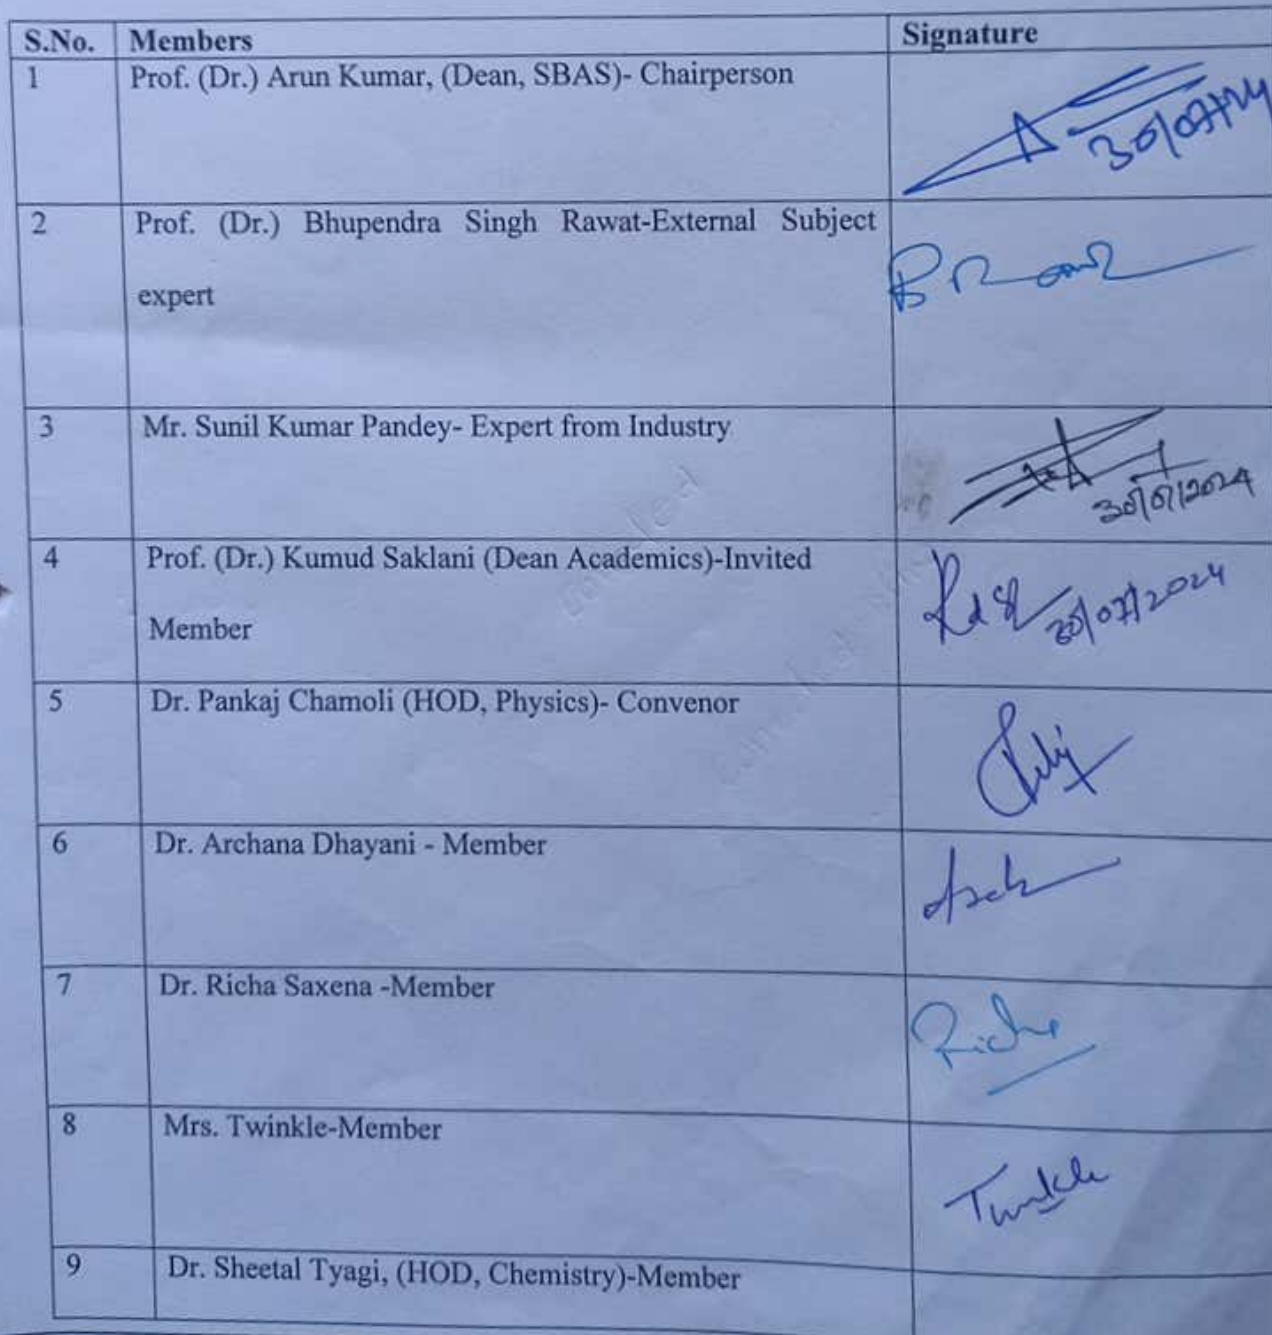 S.No. Members Signature
1 Prof. (Dr.) Arun Kumar, (Dean, SBAS)- Chairperson
30/07/24
2 Prof. (Dr.) Bhupendra Singh Rawat-External Subject
expert
3 Mr. Sunil Kumar Pandey- Expert from Industry
30/07/2024
4 Prof. (Dr.) Kumud Saklani (Dean Academics)-Invited
Member
30/07/2024
5 Dr. Pankaj Chamoli (HOD, Physics)- Convenor
6 Dr. Archana Dhayani - Member
7 Dr. Richa Saxena -Member
Richa
8 Mrs. Twinkle-Member
Twinkle
9 Dr. Sheetal Tyagi, (HOD, Chemistry)-Member